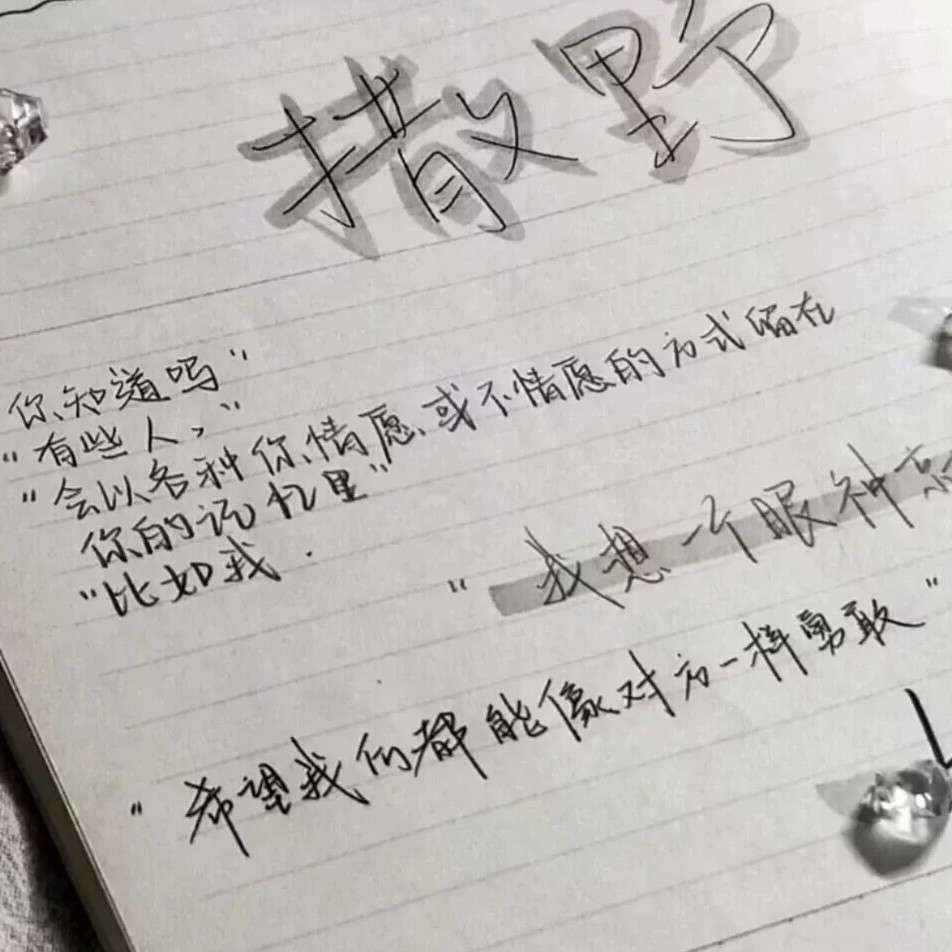 撒野
你知道吗"
"有些人，"
"会以各种你情愿、或不情愿的方式留在
你的记忆里"
"比如我.
"我想一个眼神
"希望我们都能像对方一样勇敢"